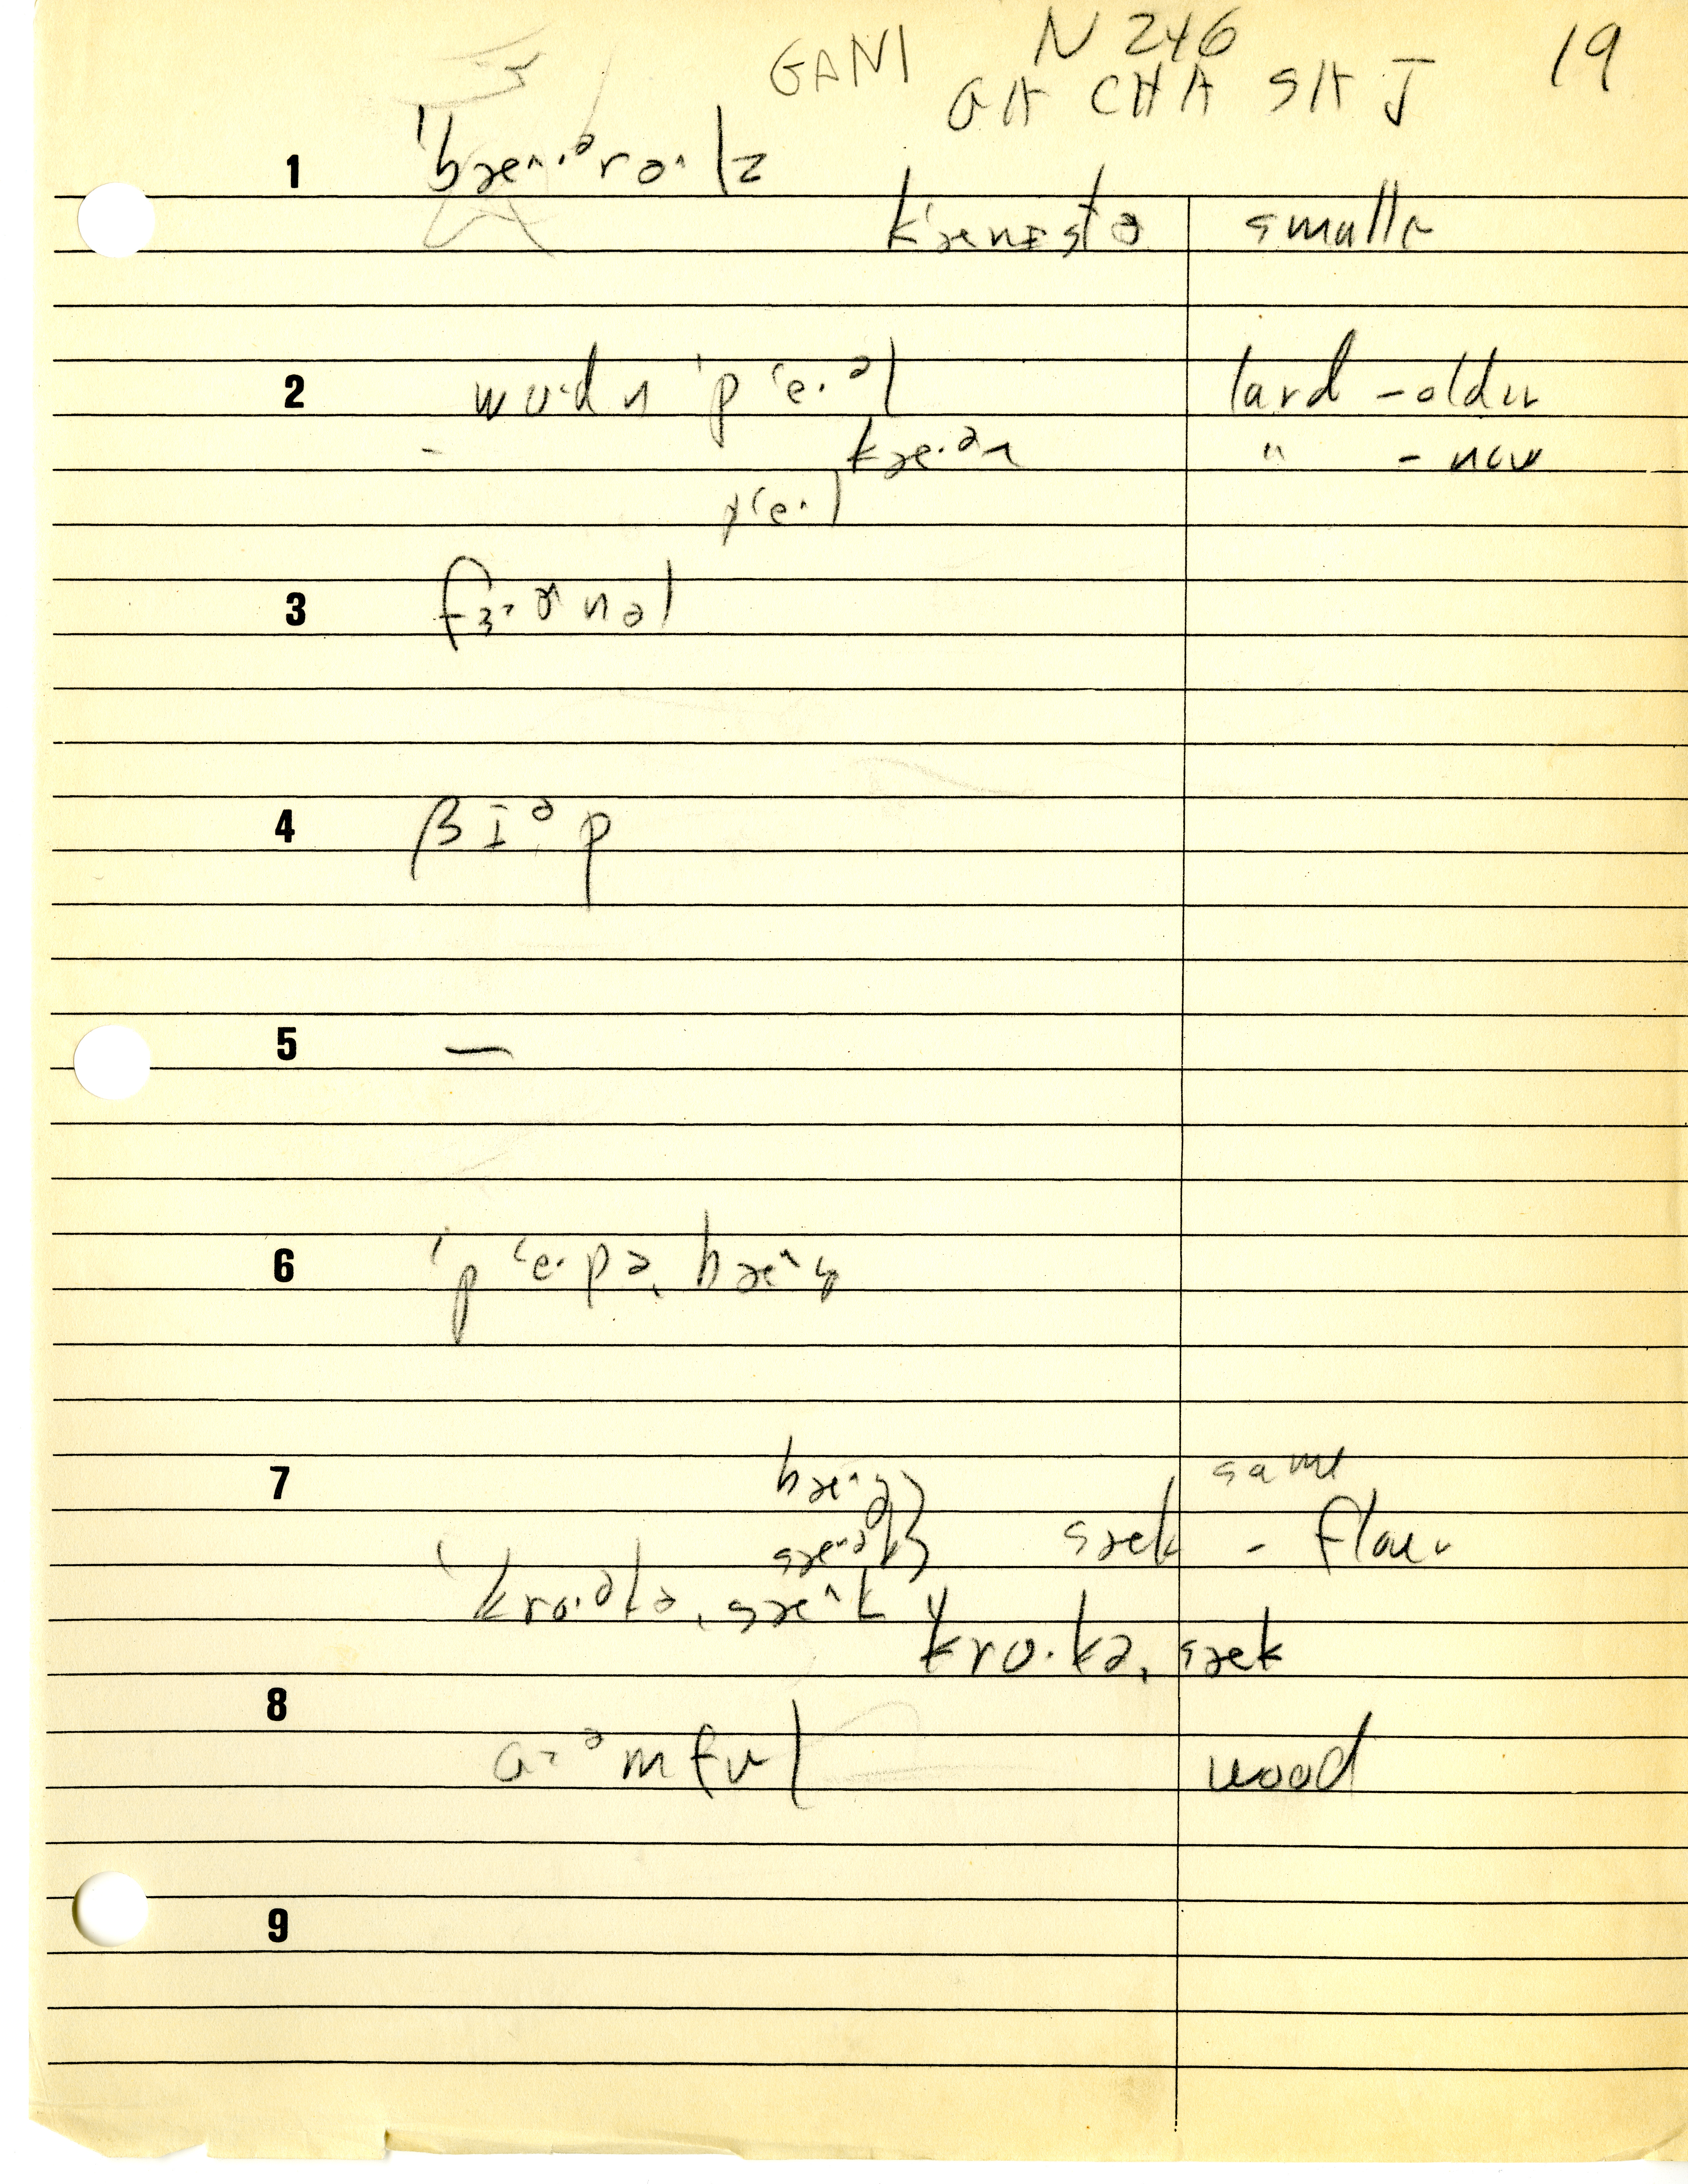 GANI N 246 19
GA CHA SA J
1 ˈbæ^·ᵊroˑlz
k‘ænɪstə smaller
2 wʊ·dn ˈp‘e·ᵊl lard - older
- kæ·ᵊn " - new
p‘e·l
3 fɜ·ɚnəl
4 βɪᵊp
5 —
6 ˈp‘e·pə ˌbæ^g
7 bæ^g} same
sæ·ᵊk} sæk - flour
ˈkro·ᵊkəˌsæ^k
kro·kəˌsæk
8 a·ᵊmfʊl wood
9